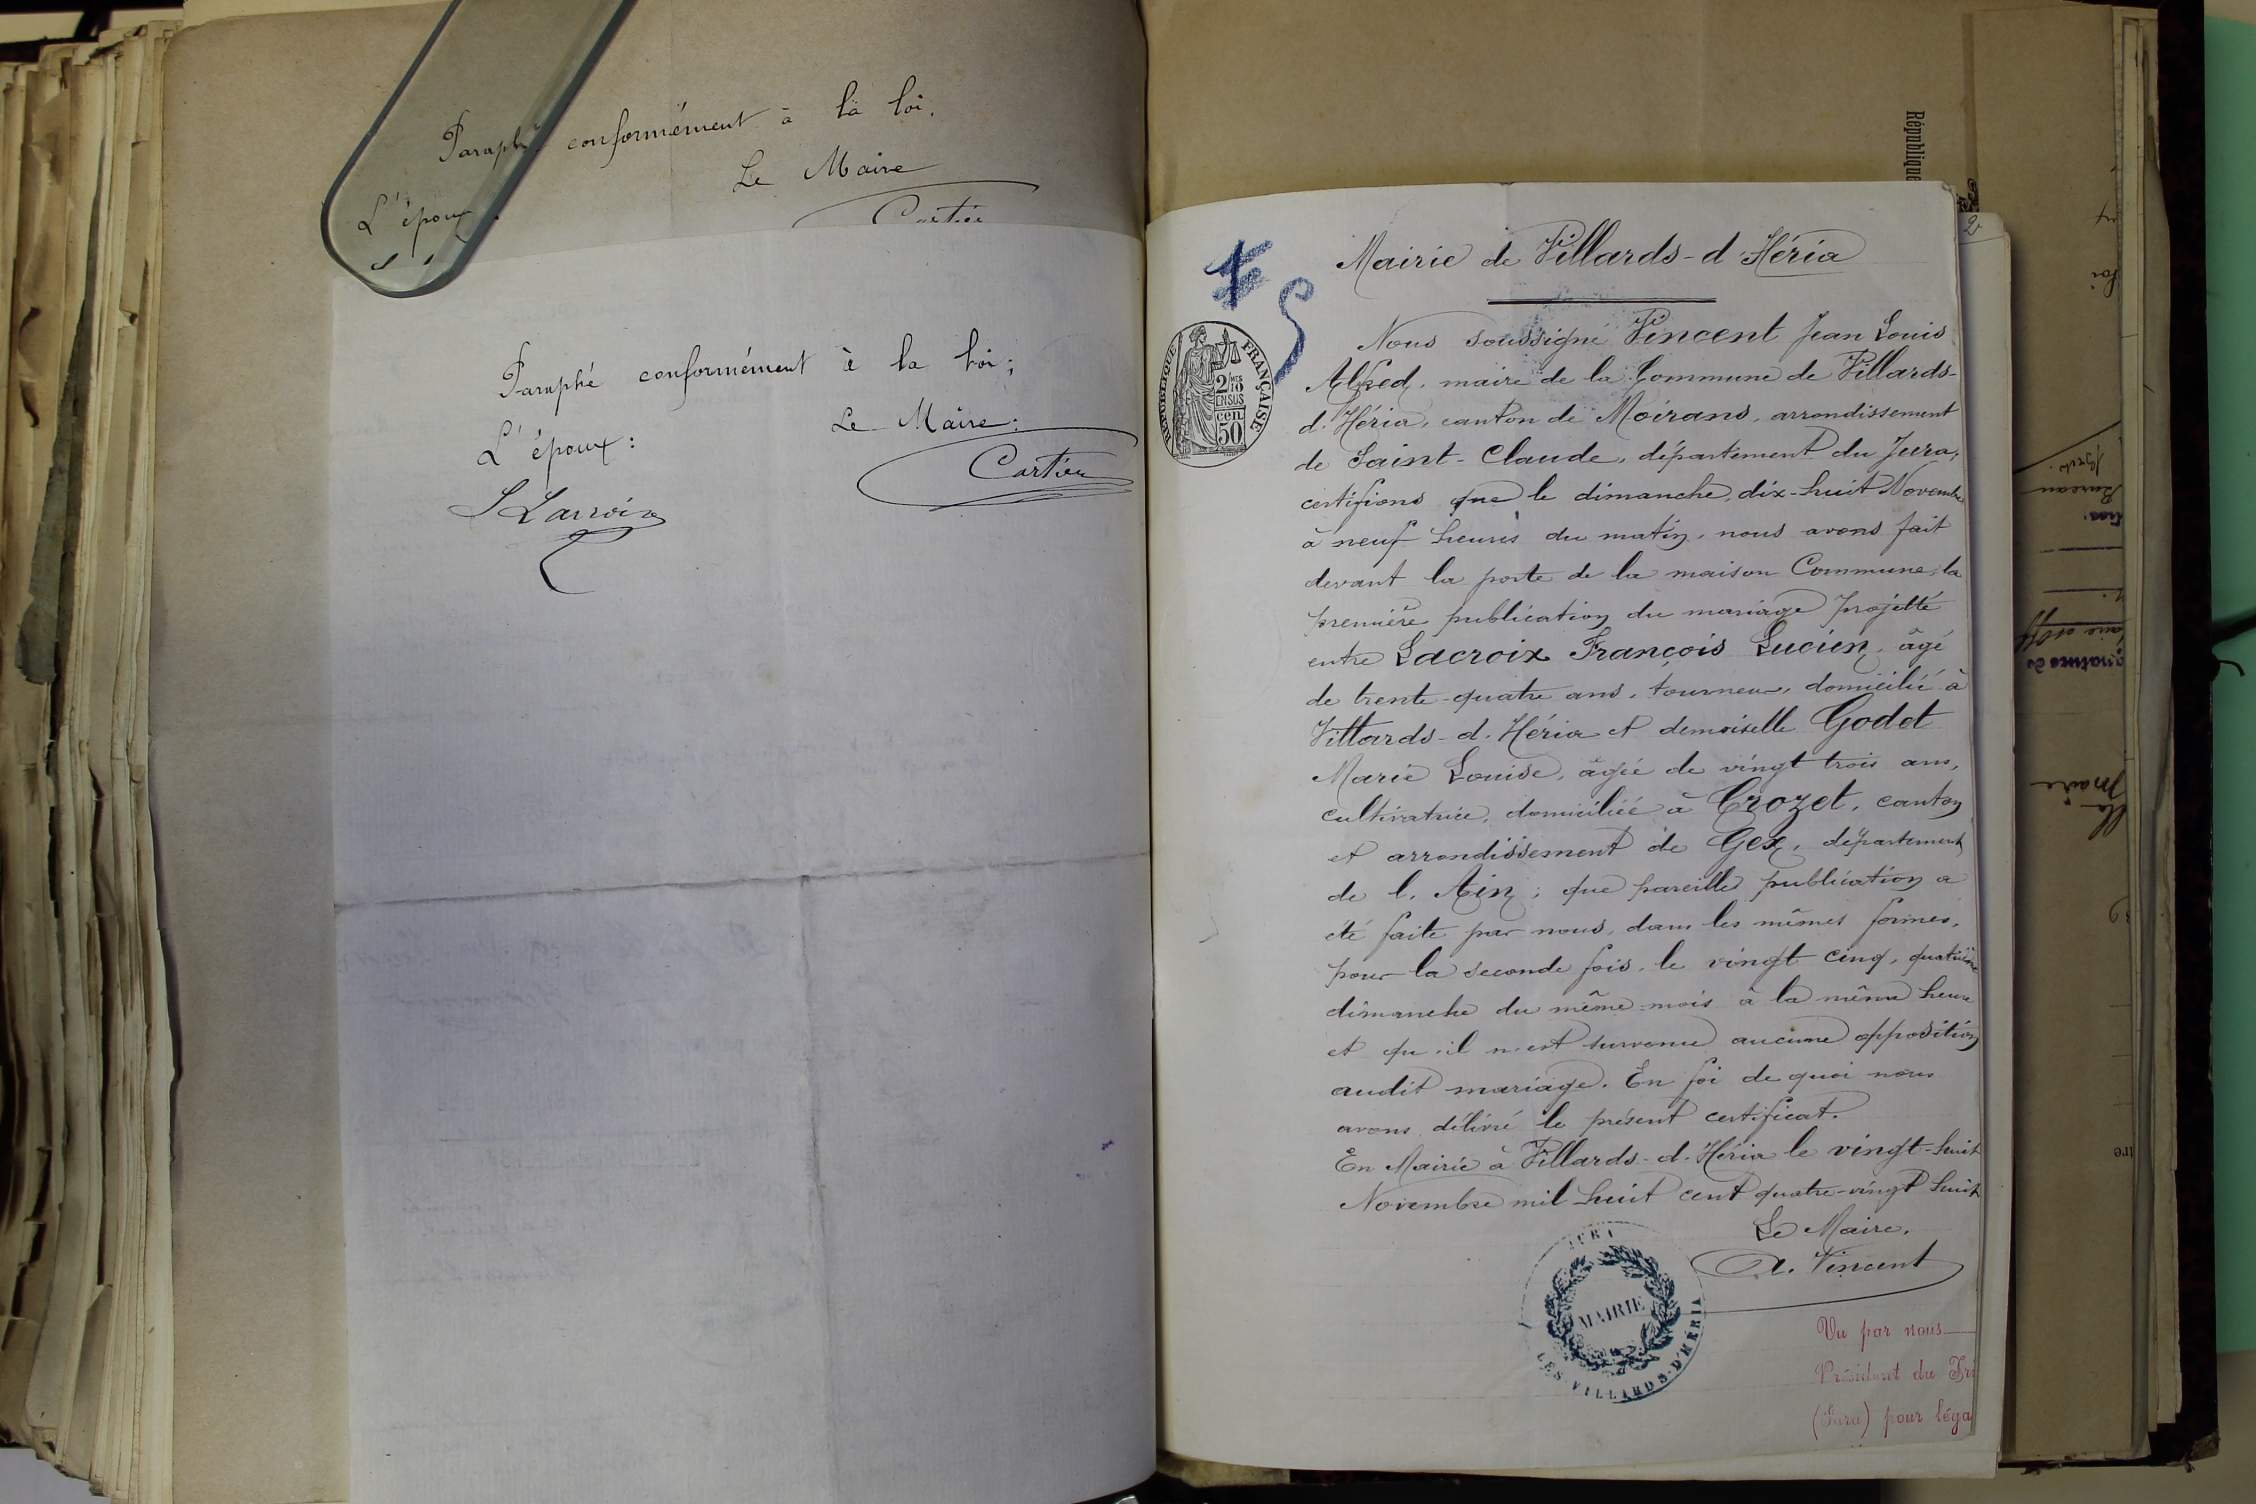 Paraphé conformément à la loi.
Le Maire
Cartier
L'époux
Paraphé conformément à la loi;
L'époux:
Le Maire:
Cartier
L Lacroix
République
2
5
Mairie de Villards-d'Héria
RÉPUBLIQUE FRANÇAISE
2/10
EN SUS
cen
50
Nous soussigné Vincent Jean Louis
Alfred, maire de la Commune de Villards-
d'Héria, canton de Moirans, arrondissement
de Saint-Claude, département du Jura,
certifions que le dimanche, dix-huit Novembre
à neuf heures du matin, nous avons fait
devant la porte de la maison Commune, la
première publication du mariage projetté
entre Lacroix François Lucien, âgé
de trente-quatre ans, tourneur, domicilié à
Villards-d'Héria et demoiselle Godet
Marie Louise, âgée de vingt trois ans,
cultivatrice, domiciliée à Crozet, canton
et arrondissement de Gex, département
de l'Ain; que pareille publication a
été faite par nous, dans les mêmes formes,
pour la seconde fois, le vingt cinq, quatrième
dimanche du même mois à la même heure
et qu'il n'est survenue aucune opposition
audit mariage. En foi de quoi nous
avons délivré le présent certificat.
En Mairie à Villards-d'Héria le vingt-huit
Novembre mil huit cent quatre-vingt huit
Le Maire,
A. Vincent
JURA
MAIRIE
LES VILLARDS-D'HÉRIA
Vu par nous
Président du Tri
(Jura) pour léga
Bureau
Le
Maire